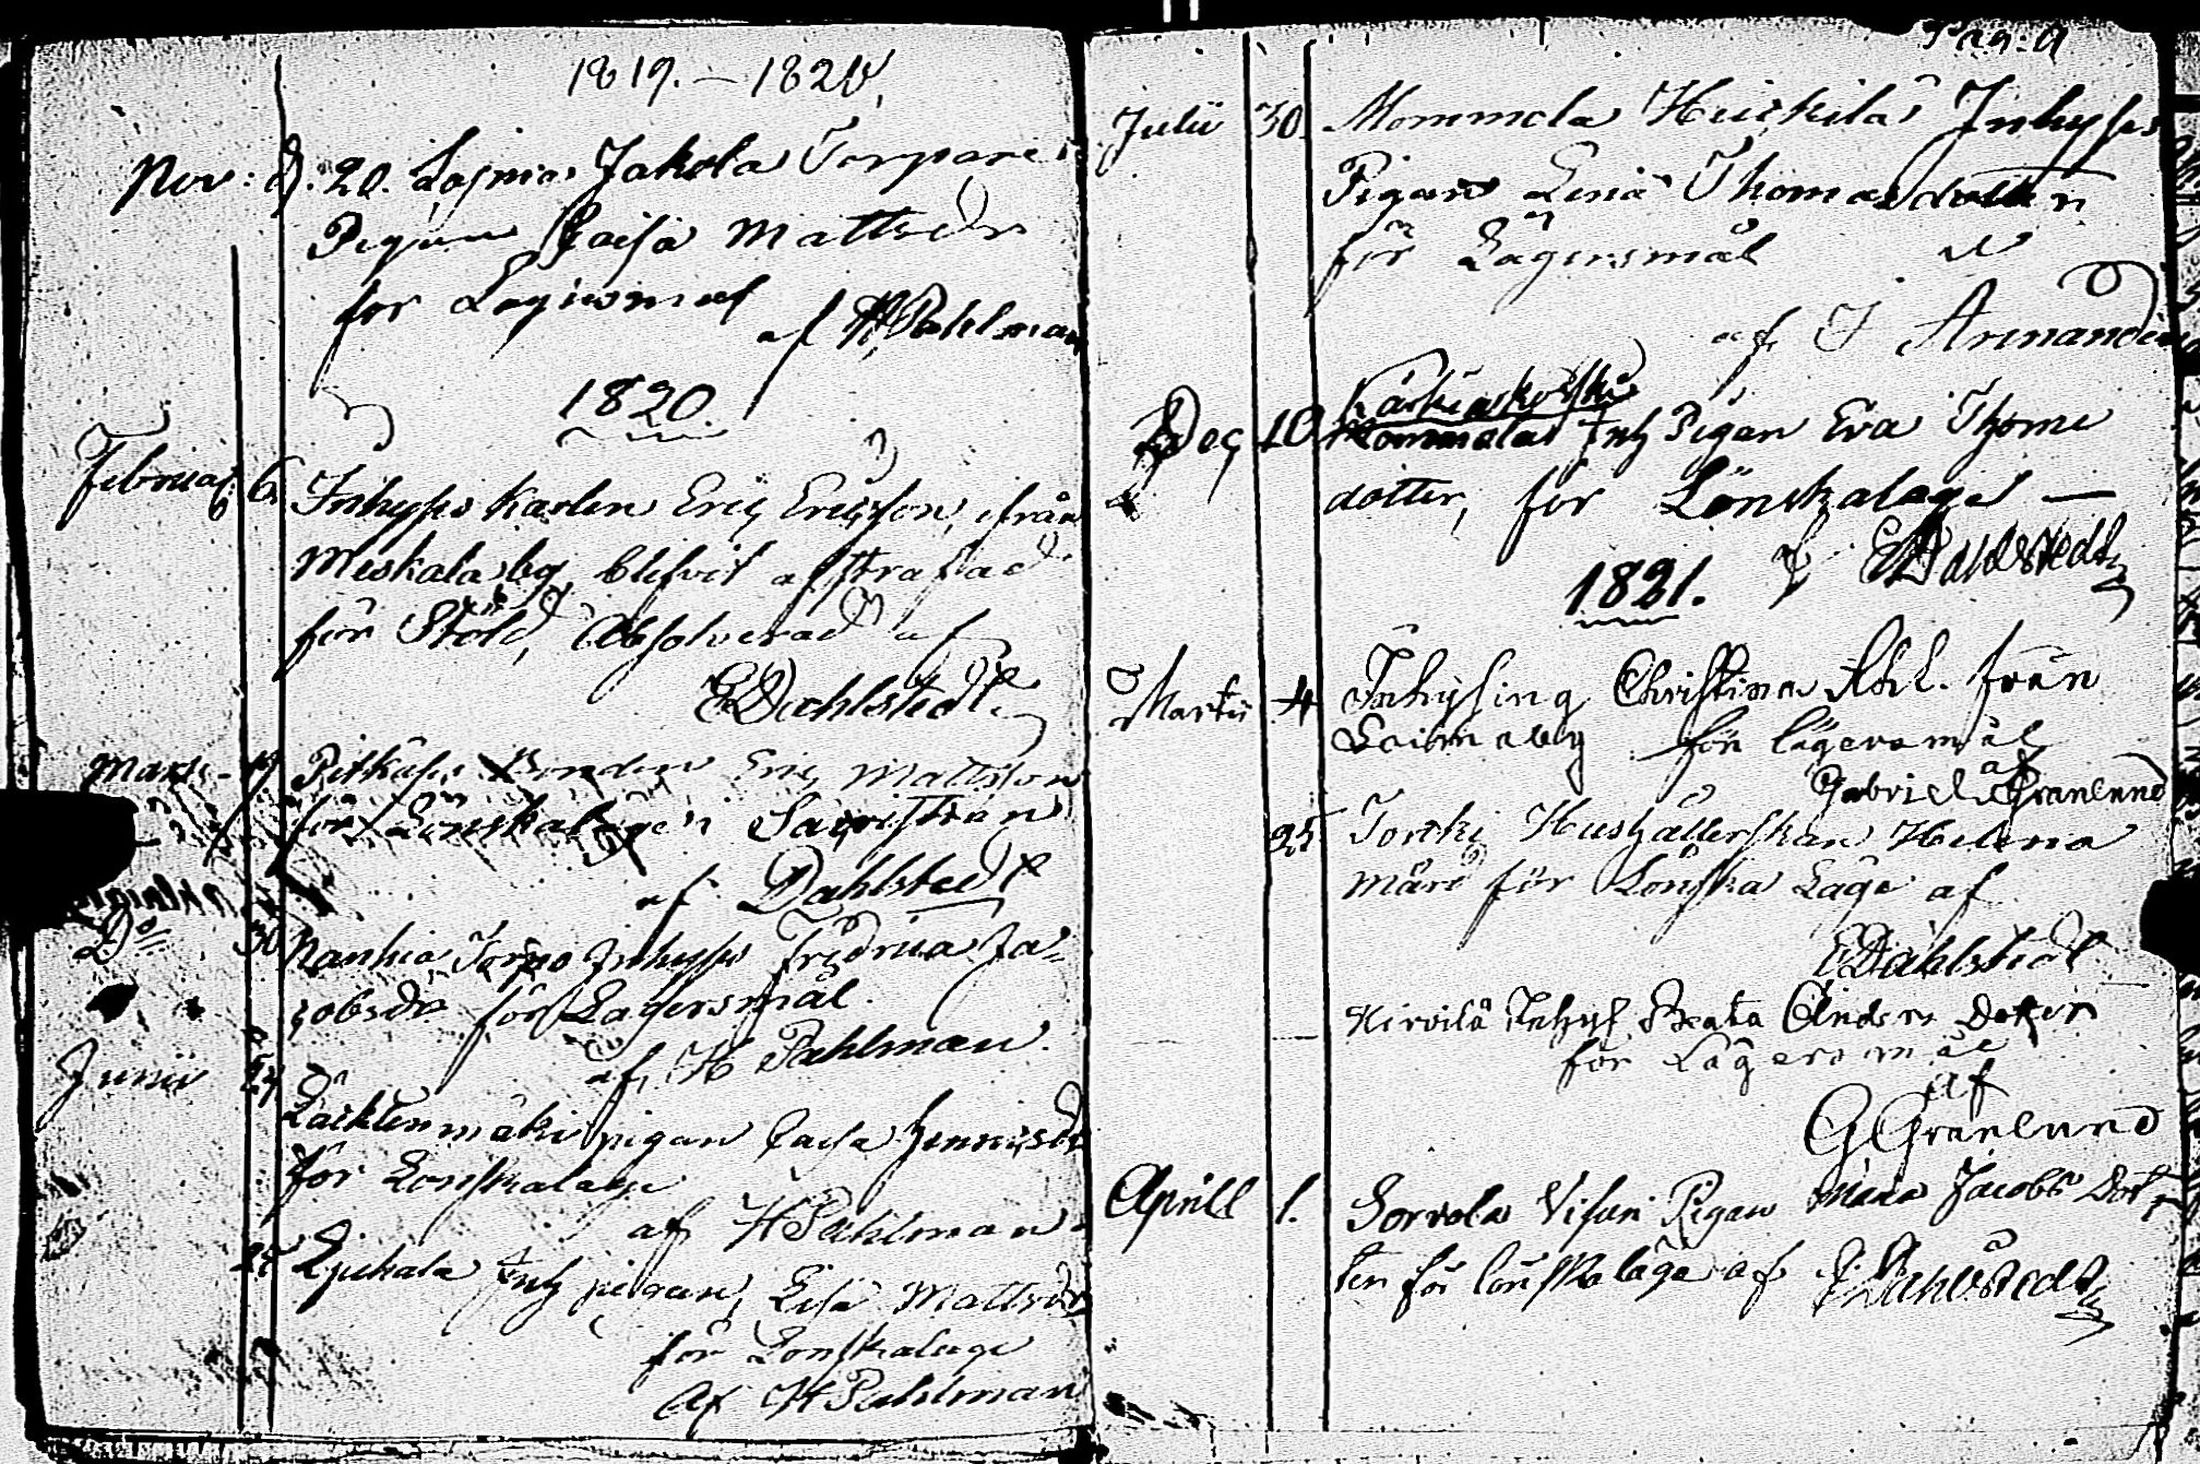 1819. – 1820.
Nov: d. 20. Jakola Torpare
Pigan Caisa Mattsdr
for Lägersmål
af H Pahlman
1820.
Februar: 6. Inhyses Karlen Eric Ericsson, ifrån
Meskala by, blifvit afstraffad
för Stöld, Absolverad af
E Dahlstedt
Mars – 19 Pitkäjs Bonden Eric Mattsson
för Lönskaläge i Sacristian
af Dahlstedt
Do 30 Nanhia Torpo Inhyses Fredrica Ja-
cobsdr för Lägersmål.
af H Pahlman.
Junii 24 Läicktenmäki pigan Caisa Henricsdr
för Lönskaläge
af H Pahlman
25 Lyukala Inh pigan, Lisa Mattsdr
för Lönskaläge
Af H Pahlman
Pag: 9
Julii 30. Mommola Heickilä Inhyses
Pigan Lena Thomasdotter
för Lägersmål
af J Armander
Karhiakoski
Dec 10 Mommola Inh Pigan Eva Thome
dotter, för Lönskalage –
E Dahlstedt
1821.
Martii 4 Inhysing Christina från
Loimaby för lägersmål
af
Gabriel Granlund
25. Tortki Hushållerskan Helena
Mård för Lönska Läge af
E Dahlstedt
Hirvilä Inhys Beata Anders Dotter
för Lägersmål
af
G Granlund
Aprill 1. Sorvola Visuri Pigan Maria Jacobs Dot
ter för lönskaläge af E Dahlstedt